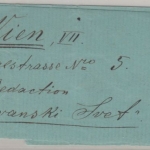 Wien, VII.
elstrasse Nro 5.
Redaction
vanski Svet.